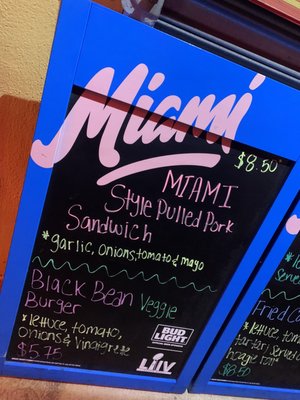 Miami
$8.50
MIAMI
Style Pulled Pork
Sandwich
*garlic, onions, tomato & mayo
Black Bean Veggie
Burger
*lettuce, tomato,
onions & vinaigrette
$5.75
BUD
LIGHT
LIV
Fried
*lettuce, tom
tartar
Serve
hoagie roll
$8.50